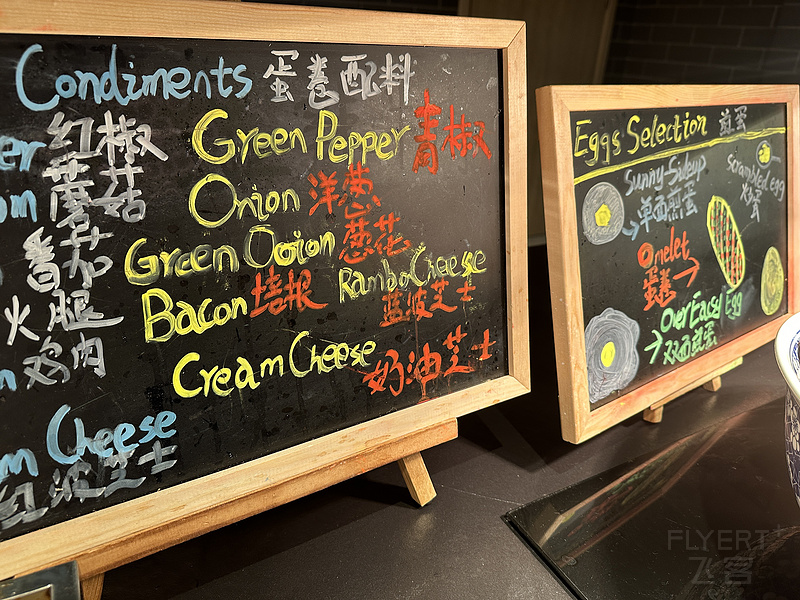 Condiments 蛋卷配料
er 红椒 Green Pepper 青椒
om 蘑菇 Onion 洋葱
番茄 Green Onion 葱花
火腿 Bacon 培根 Rambo Cheese 蓝波芝士
n 鸡肉 Cream Cheese 奶油芝士
m Cheese
红波芝士
Eggs Selection 煎蛋
Sunny-Sideup
单面煎蛋
Scrambled egg
炒蛋
Omelet
蛋卷
Over Easy Egg
双面煎蛋
FLYERT
飞客